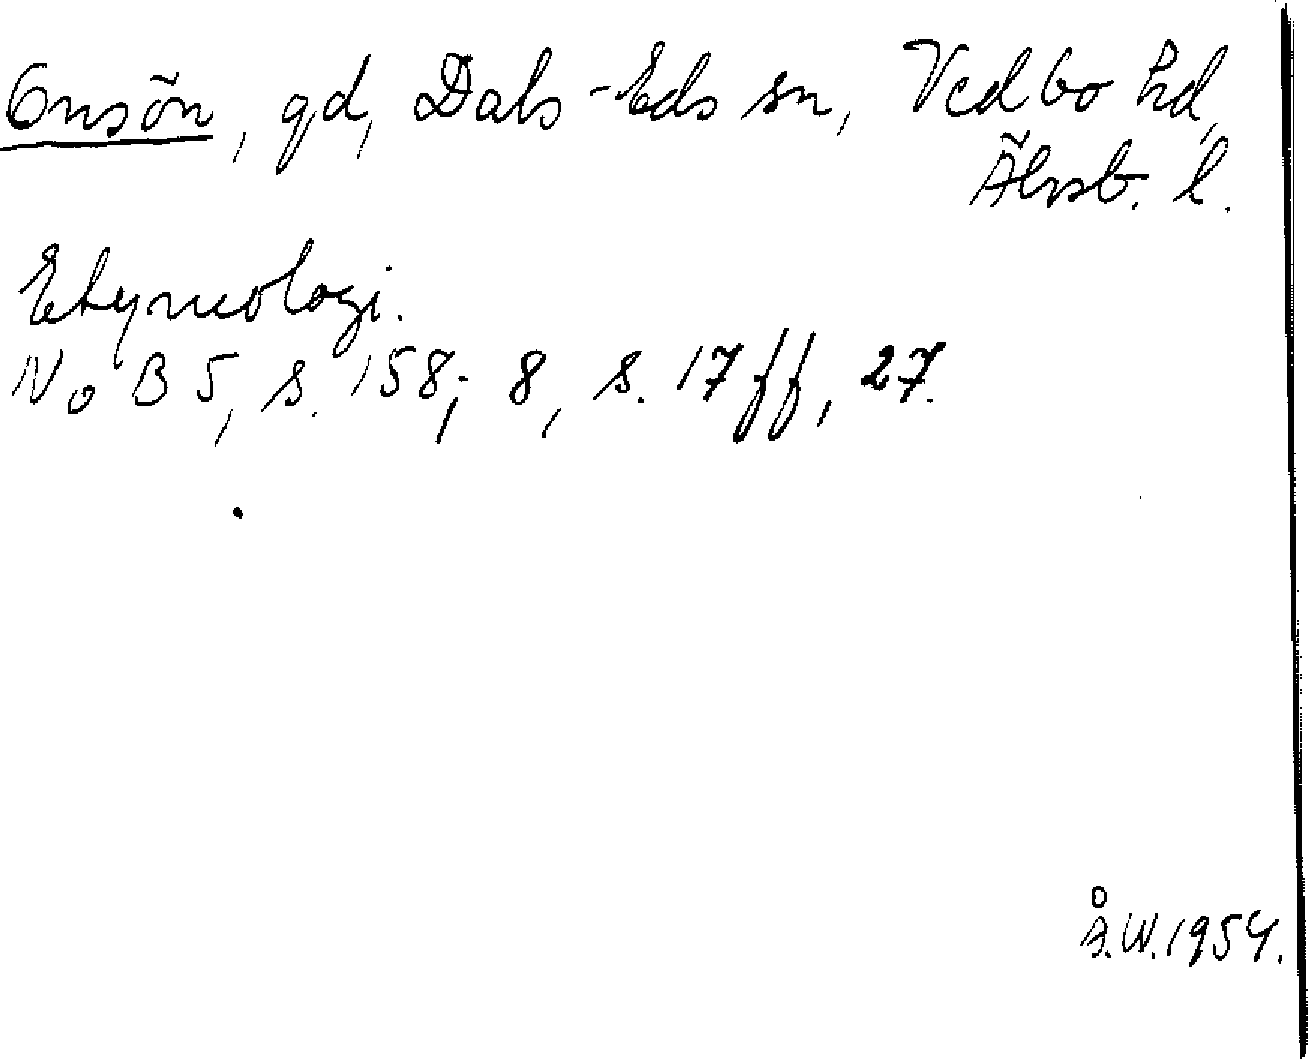 Onsön, gd, Dals-Eds sn, Vedbo hd,
Älvsb. l.
Etymologi.
NoB 5, s. 158; 8, s. 17 ff, 27.
Å.W. 1954.